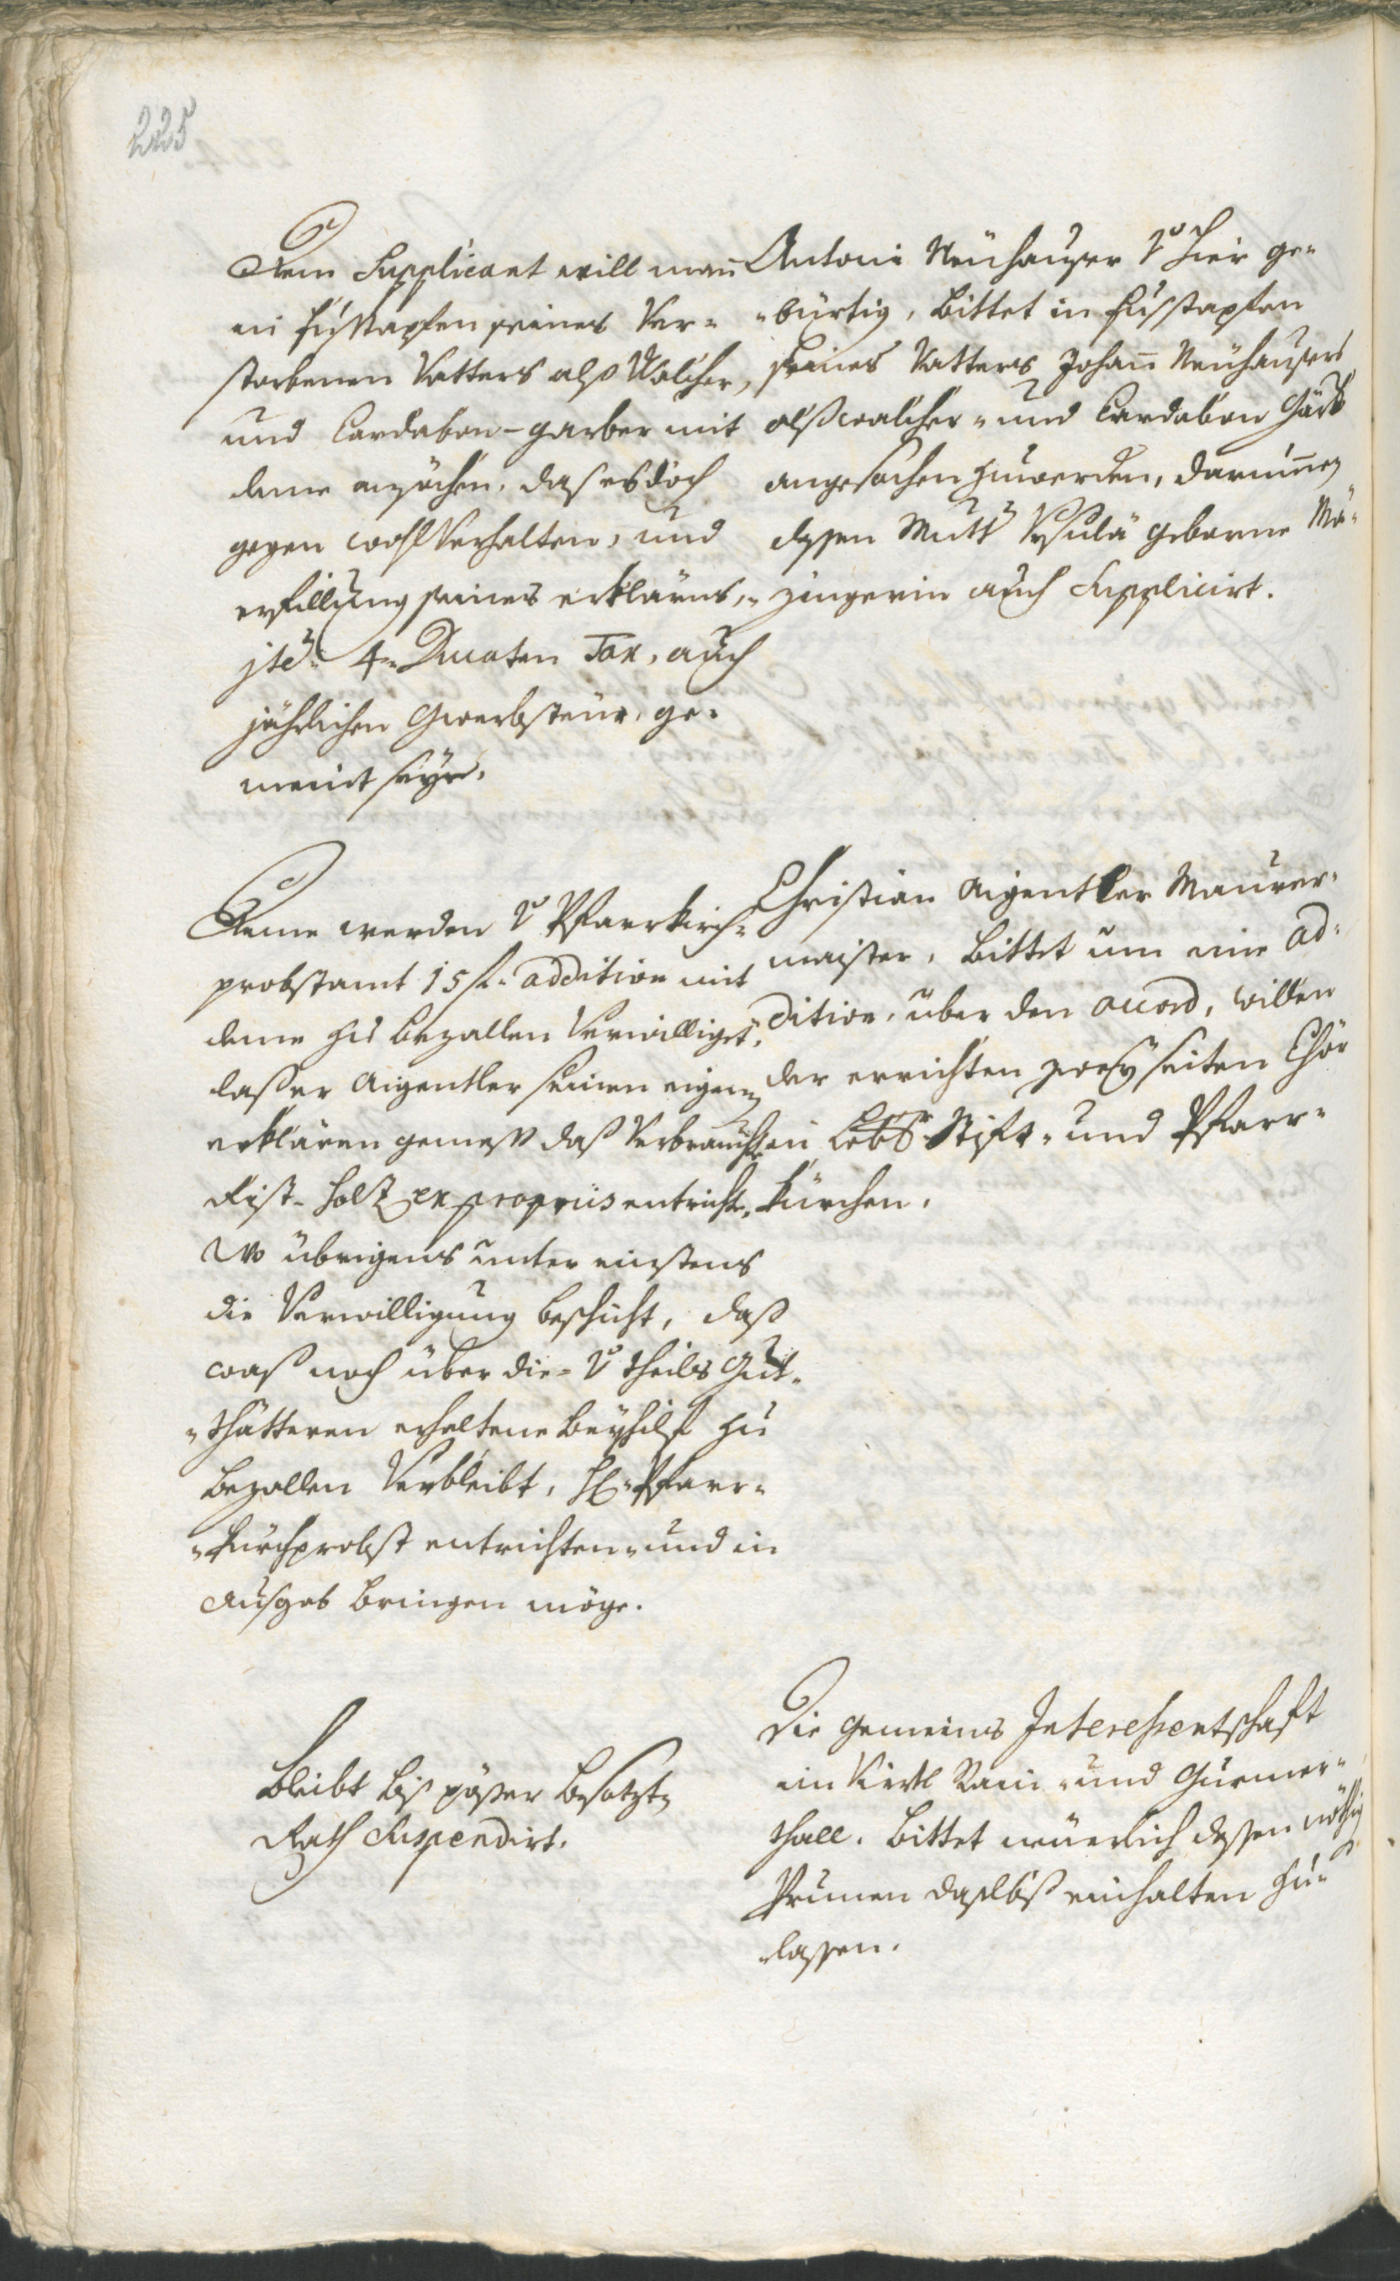 225
Dem Supplicant will man
in fusstapfen seines Ver-
storbenen Vatters als Walcher,
und Cordaban-garber mit
deme anzöchen, das es doch
gegen wohl Verhalten, und
erfillung seines erklärns,
jtē 4 Ducaten Tax, auch
jährlichen Gwerbsteur, ge-
meint seye.
Antoni Neuhauser v hier ge-
bürtig, bittet in fusstapfen
seines Vatters Johann Neuhausers
alß walcher- und Cordaban Gärb
angesechen zuwerden, darum
dessen Mutt Ursula geborne Mö-
zingerin auch Supplicirt.
Deme werden v Pfarrkirch-
probstamt 15 f. addition mit
deme zu bezallen Verwilliget,
das er Aigentler seinen eigen
erklären gemeß daß Verbrauchte
Rist-holz ex propriis entrichte.
Wo übrigens unter einstens
die Verwilligung beschicht, daß
waß noch über die v theils Gut-
thätteren erhaltene beyhilf zu
bezallen Verbleibt, H. Pfarr-
kürchprobst entrichten und in
Ausgab bringen möge.
Christian Aigentler Maurer-
maister, bittet um eine ad-
dition, über den accord, willen
der errichten zwey seiten Chör
in Stift- und Pfarr-
kürchen.
bleibt biß zu besezt
Rath suspendirt.
Die gemeine Interessentschaft
im Viertl Rain und
thall. bittet neuerlich dessen nöthig
Prunen daselbst einhalten zu
lassen.